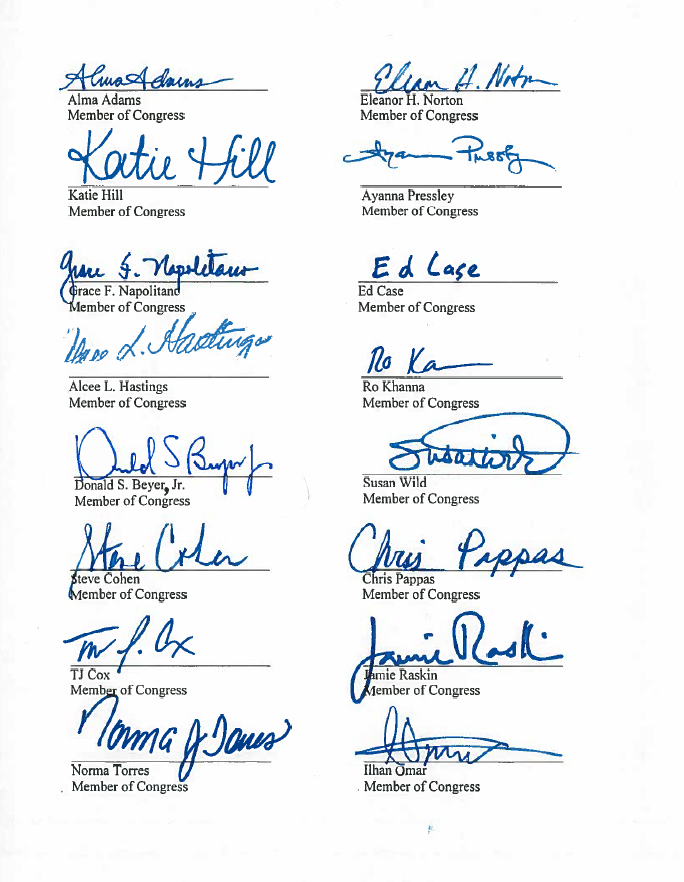 Alma Adams
Alma Adams
Member of Congress
Eleanor H. Norton
Eleanor H. Norton
Member of Congress
Katie Hill
Katie Hill
Member of Congress
Ayanna Pressley
Ayanna Pressley
Member of Congress
Grace F. Napolitano
Grace F. Napolitano
Member of Congress
Ed Case
Ed Case
Member of Congress
Alcee L. Hastings
Alcee L. Hastings
Member of Congress
Ro Khanna
Ro Khanna
Member of Congress
Donald S Beyer Jr
Donald S. Beyer, Jr.
Member of Congress
Susan Wild
Susan Wild
Member of Congress
Steve Cohen
Steve Cohen
Member of Congress
Chris Pappas
Chris Pappas
Member of Congress
TJ Cox
TJ Cox
Member of Congress
Jamie Raskin
Jamie Raskin
Member of Congress
Norma J Torres
Norma Torres
Member of Congress
Ilhan Omar
Member of Congress